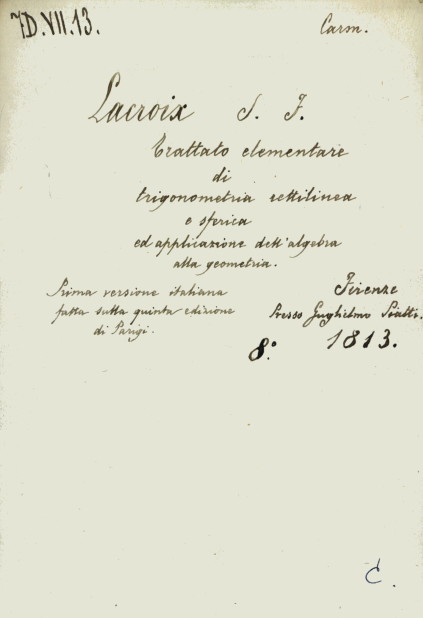 7D.VII.13.
Carm.
Lacroix S. F.
Trattato elementare
di
trigonometria rettilinea
e sferica
ed applicazione dell'algebra
alla geometria.
Prima versione italiana
fatta sulla quinta edizione
di Parigi.
Firenze
Presso Guglielmo Piatti.
8.° 1813.
C.